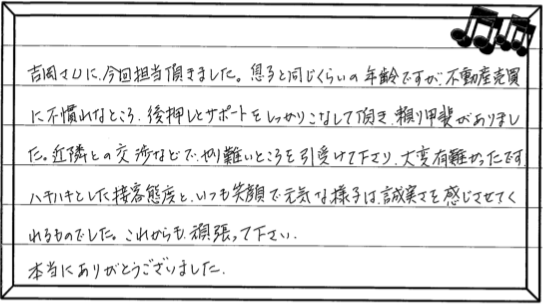 吉岡さんに、今回担当頂きました。息子と同じくらいの年齢ですが、不動産売買
に不慣れなところ、後押しとサポートをしっかりこなして頂き、頼り甲斐がありまし
た。近隣との交渉などで、やり難いところを引受けて下さり、大変有難かったです。
ハキハキとした接客態度と、いつも笑顔で元気な様子は、誠実さを感じさせてく
れるものでした。これからも、頑張って下さい。
本当にありがとうございました。